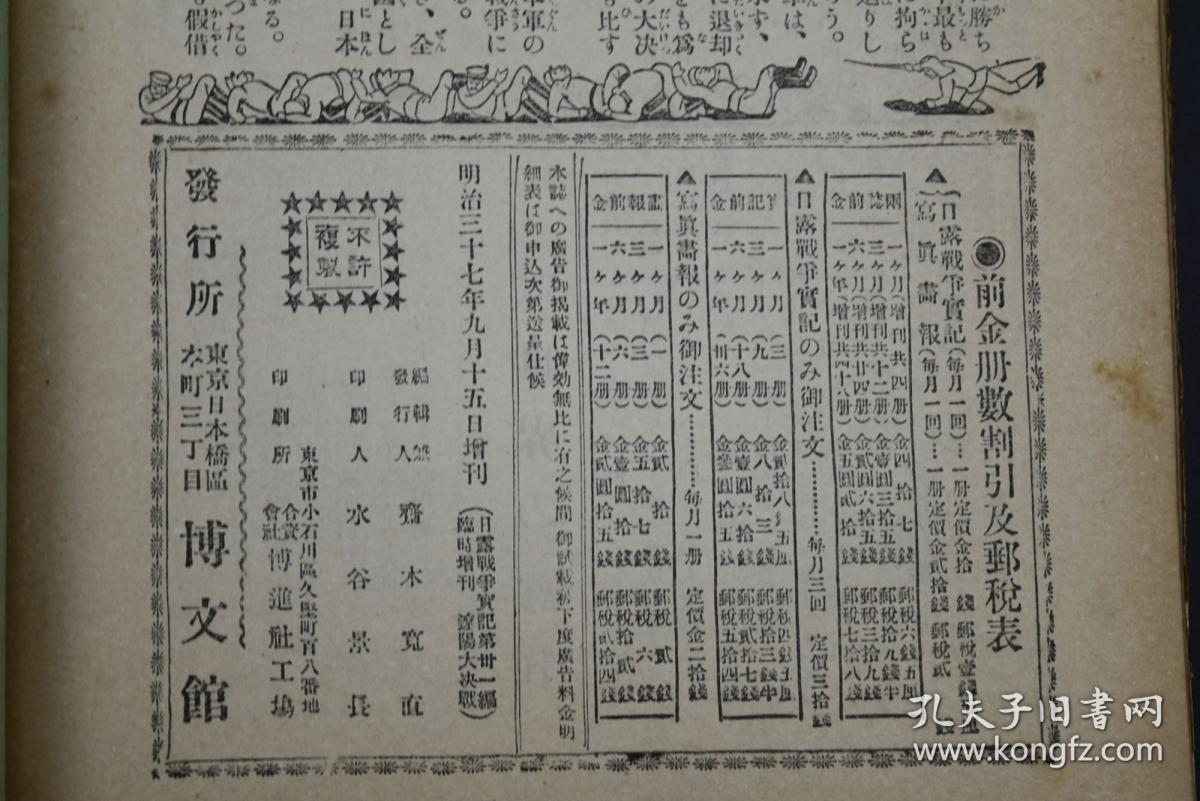 に勝ち
最も
に拘ら
返りし
う。
車は、
ず、
に退却
をも爲
の大决
も比す
軍の
戰爭に
る。
國とし
、全
日本
なる。
つた。
も假借
前金册數割引及郵税表
▲日露戰爭實記(毎月一回)…一册定價金拾 錢 郵税壹錢五厘
寫眞畵報(毎月一回)…一册定價金貳拾錢 郵税貳 錢
兩誌前金
一ヶ月(增刊共四册)金四拾七錢 郵税六錢五厘
三ヶ月(增刊共十二册)金壹圓三拾五錢 郵税拾九錢半
六ヶ月(增刊共廿四册)金貳圓六拾五錢 郵税三拾九錢
一ヶ年(增刊共四十八册)金五圓貳拾錢 郵税七拾八錢
▲日露戰爭實記のみ御注文…………毎月三回 定價三拾錢
實記前金
一ヶ月(三册)金貳拾八錢五厘 郵税四錢五厘
三ヶ月(九册)金八拾三錢 郵税拾三錢半
六ヶ月(十八册)金壹圓六拾錢 郵税貳拾七錢
一ヶ年(卅六册)金叁圓拾五錢 郵税五拾四錢
▲寫眞畵報のみ御注文…………毎月一册 定價金二拾錢
畵報前金
一ヶ月(一册)金貳拾錢 郵税貳錢
三ヶ月(三册)金五拾七錢 郵税六錢
六ヶ月(六册)金壹圓拾錢 郵税拾貳錢
一ヶ年(十二册)金貳圓拾五錢 郵税貳拾四錢
本誌への廣告御揭載は偉効無比に有之候間御試載被下度廣告料金明
細表は御申込次第送呈仕候
明治三十七年九月十五日增刊
(日露戰爭實記第卅一編
臨時增刊 遼陽大决戰)
不許
複製
編輯兼
發行人 齋木寬直
印刷人 水谷景長
東京市小石川區久堅町百八番地
印刷所 合資會社 博進社工塲
發行所
東京日本橋區
本町三丁目
博文館
孔夫子旧书网
www.kongfz.com